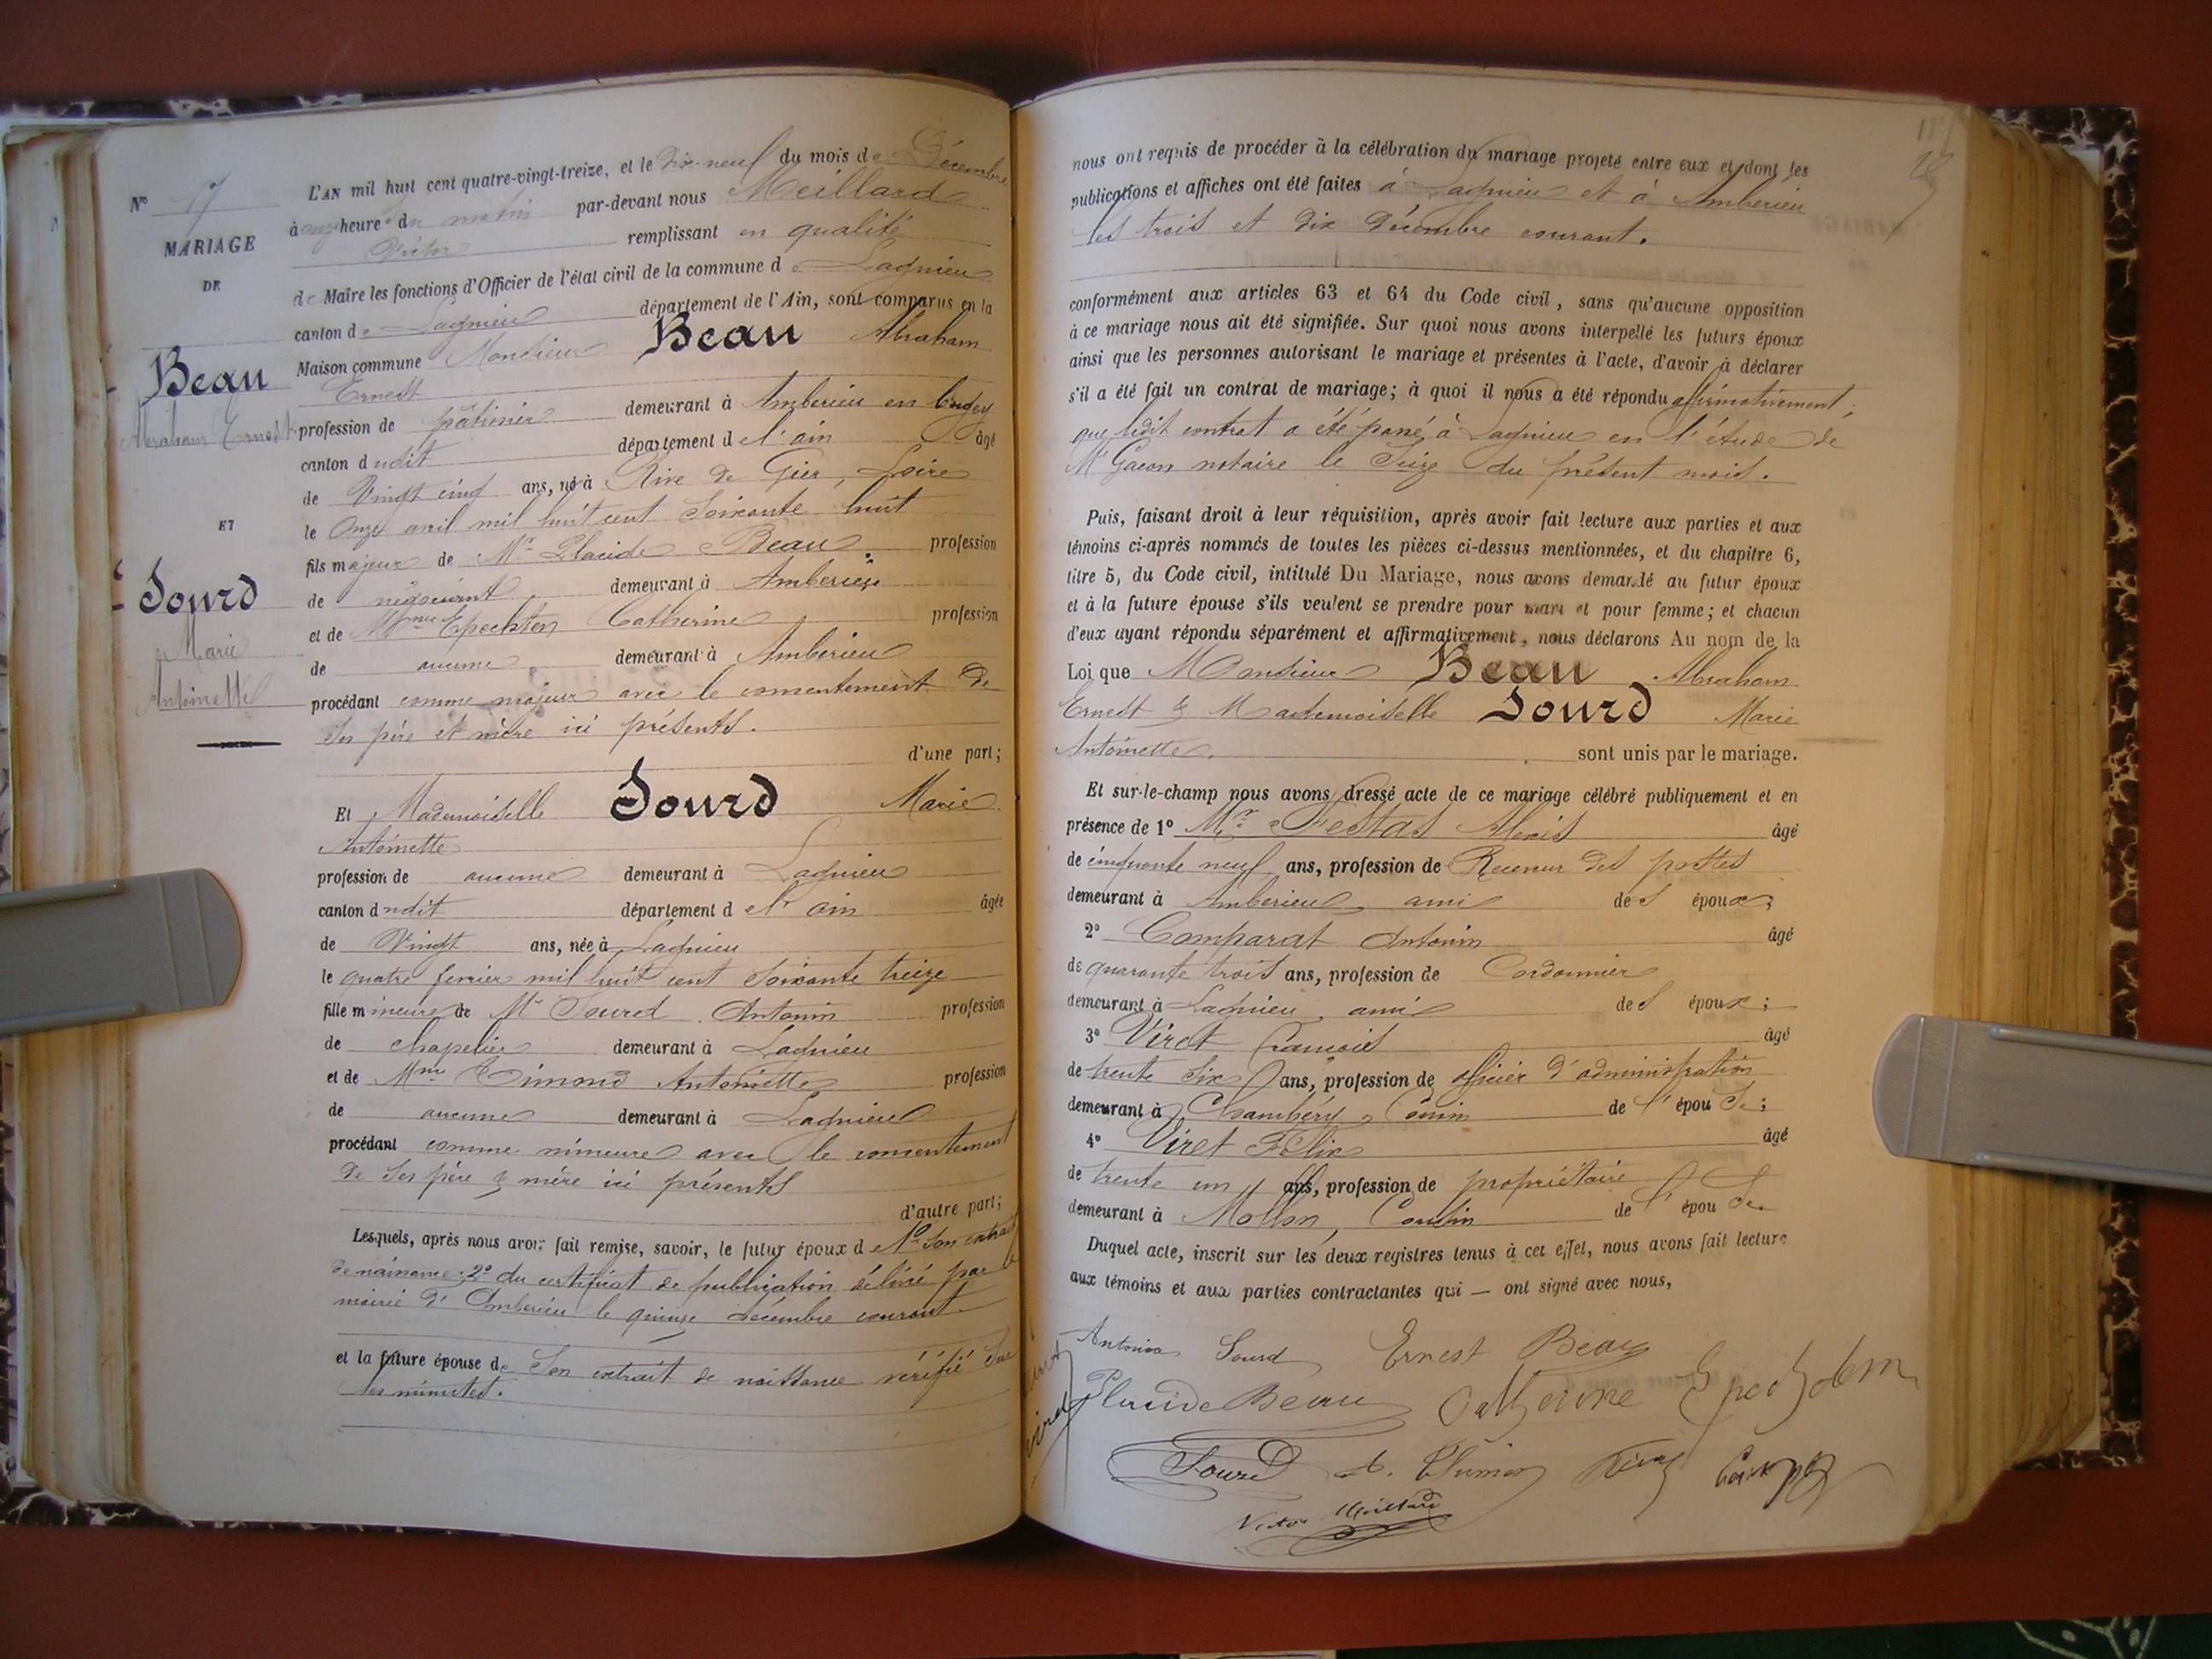 N° 17
MARIAGE
DE
Beau
Abraham Ernest
ET
Sourd
Marie
Antoinette
L'AN mil huit cent quatre-vingt-treize, et le dix-neuf du mois de Décembre
à onze heures du matin par-devant nous Meillard
Victor remplissant en qualité
de Maire les fonctions d'Officier de l'état civil de la commune de Lagnieu
canton de Lagnieu département de l'Ain, sont comparus en la
Maison commune Monsieur Beau Abraham
Ernest
profession de pâtissier demeurant à Ambérieu en Bugey
canton dudit département de l'ain âgé
de Vingt cinq ans, né à Rive de Gier, Loire
le onze avril mil huit cent soixante huit
fils majeur de Mr Placide Beau profession
de négociant demeurant à Ambérieu
et de Mme Catherine profession
de aucune demeurant à Ambérieu
procédant comme majeur avec le consentement de
ses père et mère ici présents.
d'une part;
Et Mademoiselle Sourd Marie
Antoinette
profession de aucune demeurant à Lagnieu
canton dudit département de l'ain âgée
de Vingt ans, née à Lagnieu
le quatre fevrier mil huit cent soixante treize
fille mineure de Mr Sourd Antonin profession
de chapelier demeurant à Lagnieu
et de Mme Antoinette profession
de aucune demeurant à Lagnieu
procédant comme mineure avec le consentement
de ses père & mère ici présents
d'autre part;
Lesquels, après nous avoir fait remise, savoir, le futur époux de 1° son extrait
de naissance; 2° du certificat de publication délivré par la
mairie d'Ambérieu le quinze décembre courant
et la future épouse de son extrait de naissance vérifié sur
les minutes.
nous ont requis de procéder à la célébration du mariage projeté entre eux et dont les
publications et affiches ont été faites à Lagnieu et à Ambérieu
les trois et dix décembre courant.
conformément aux articles 63 et 64 du Code civil, sans qu'aucune opposition
à ce mariage nous ait été signifiée. Sur quoi nous avons interpellé les futurs époux
ainsi que les personnes autorisant le mariage et présentes à l'acte, d'avoir à déclarer
s'il a été fait un contrat de mariage; à quoi il nous a été répondu affirmativement;
que ledit contrat a été passé à Lagnieu en l'étude de
Me Gacon notaire le seize du présent mois.
Puis, faisant droit à leur réquisition, après avoir fait lecture aux parties et aux
témoins ci-après nommés de toutes les pièces ci-dessus mentionnées, et du chapitre 6,
titre 5, du Code civil, intitulé Du Mariage, nous avons demandé au futur époux
et à la future épouse s'ils veulent se prendre pour mari et pour femme; et chacun
d'eux ayant répondu séparément et affirmativement, nous déclarons Au nom de la
Loi que Monsieur Beau Abraham
Ernest & Mademoiselle Sourd Marie
Antoinette sont unis par le mariage.
Et sur-le-champ nous avons dressé acte de ce mariage célébré publiquement et en
présence de 1° Mr Festas Alexis âgé
de cinquante neuf ans, profession de Receveur des postes
demeurant à Ambérieu ami des époux;
2° Comparat Antonin âgé
de quarante trois ans, profession de Cordonnier
demeurant à Lagnieu, ami des époux;
3° Viret François âgé
de trente six ans, profession de officier d'administration
demeurant à Chambéry, Cousin de l'épouse;
4° Viret Félix âgé
de trente un ans, profession de propriétaire
demeurant à Mollon, Cousin de l'épouse
Duquel acte, inscrit sur les deux registres tenus à cet effet, nous avons fait lecture
aux témoins et aux parties contractantes qui — ont signé avec nous,
Sourd Ernest Beau
Placide Beau Catherine
Sourd
Victor Meillard